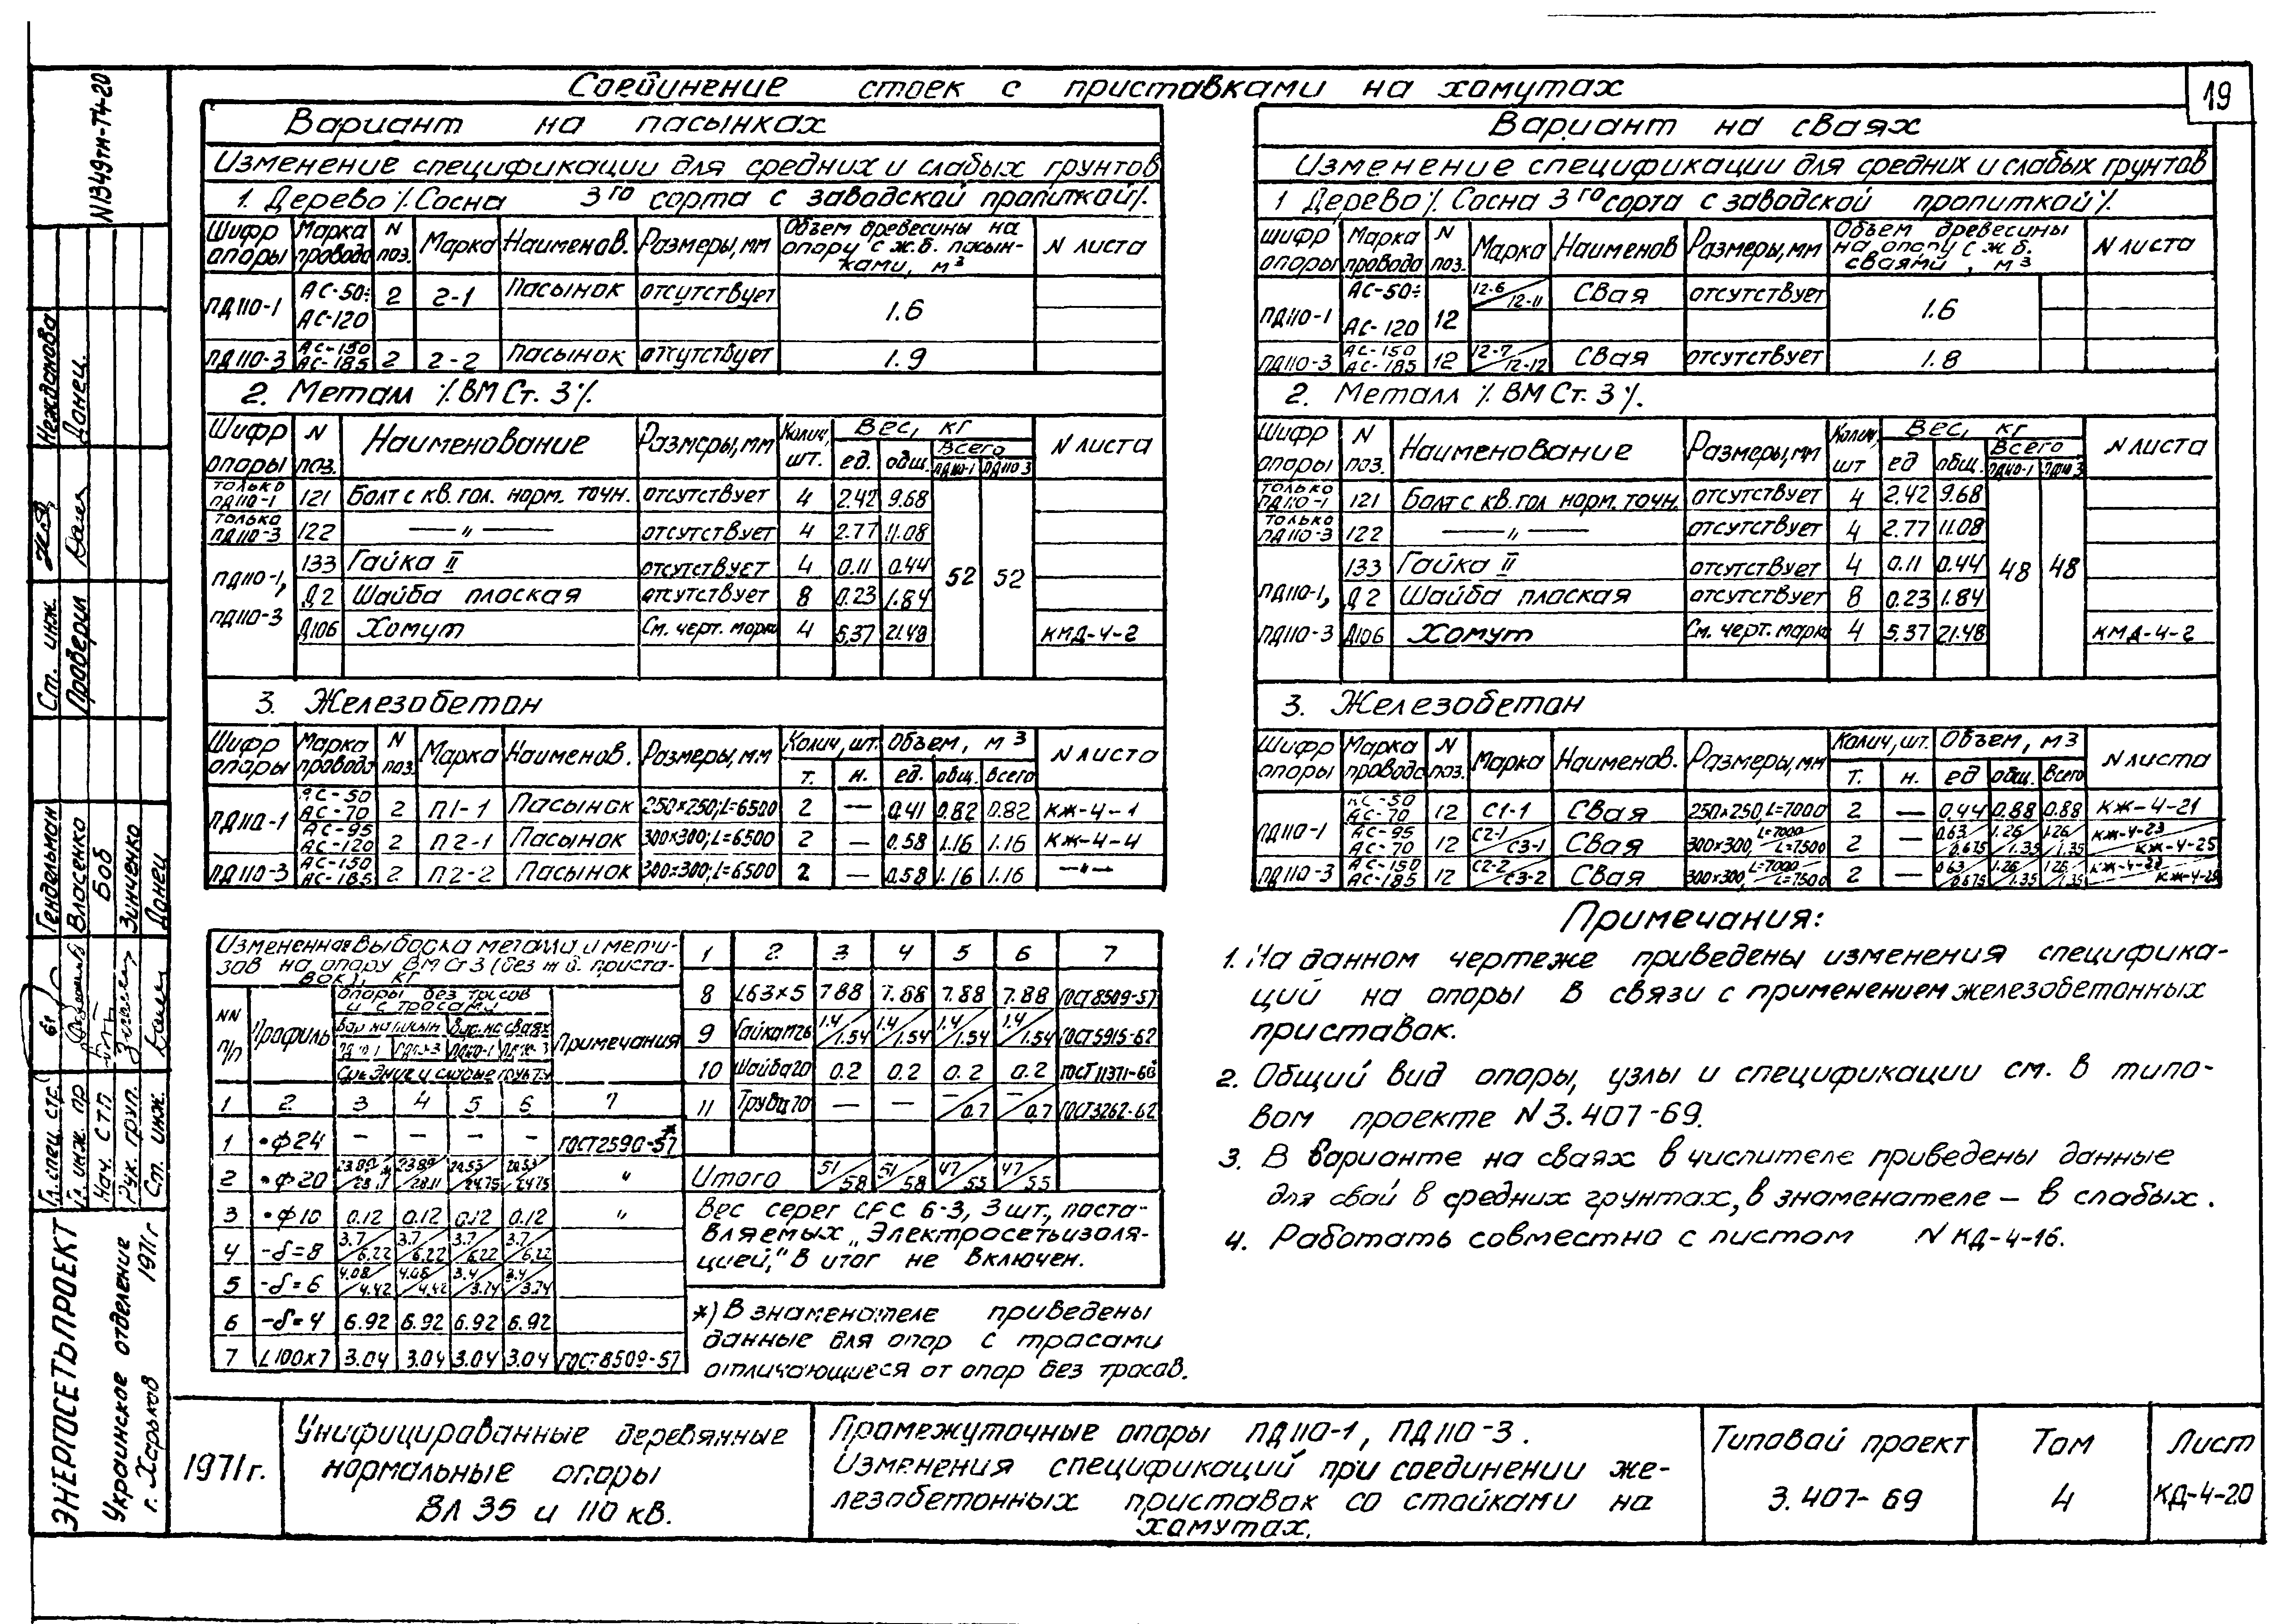 19
Соединение стоек с приставками на хомутах
Вариант на пасынках
Изменение спецификации для средних и слабых грунтов
1. Дерево /. Сосна 3го сорта с заводской пропиткой /.
Шифр опоры Марка провода N поз. Марка Наименов. Размеры, мм Объем древесины на опору с ж.б. пасынками, м³ N листа
ПД110-1 АС-50÷ АС-120 2 2-1 Пасынок отсутствует 1.6
ПД110-3 АС-150 АС-185 2 2-2 Пасынок отсутствует 1.9
2. Метал /. ВМ Ст. 3 /.
Шифр опоры N поз. Наименование Размеры, мм Колич, шт. Вес, кг ед. общ. Всего ПД110-1 ПД110-3 N листа
только ПД110-1 121 Болт с кв. гол. норм. точн. отсутствует 4 2.42 9.68
только ПД110-3 122 — " — отсутствует 4 2.77 11.08
ПД110-1, ПД110-3 133 Гайка II отсутствует 4 0.11 0.44 52 52
Д2 Шайба плоская отсутствует 8 0.23 1.84
Д106 Хомут См. черт. марк 4 5.37 21.48 КМД-4-2
3. Железобетон
Шифр опоры Марка провода N поз. Марка Наименов. Размеры, мм Колич, шт. т. н. Объем, м3 ед. общ. всего N листа
ПД110-1 АС-50 АС-70 2 П1-1 Пасынок 250×250; L=6500 2 — 0.41 0.82 0.82 КЖ-4-1
АС-95 АС-120 2 П2-1 Пасынок 300×300; L=6500 2 — 0.58 1.16 1.16 КЖ-4-4
ПД110-3 АС-150 АС-185 2 П2-2 Пасынок 300×300; L=6500 2 — 0.58 1.16 1.16 —"—
Вариант на сваях
Изменение спецификации для средних и слабых грунтов
1 Дерево /. Сосна 3го сорта с заводской пропиткой /.
Шифр опоры Марка провода N поз. Марка Наименов Размеры, мм Объем древесины на опору с ж б. сваями, м3 N листа
ПД110-1 АС-50÷ АС-120 12 12-6/12-11 Свая отсутствует 1.6
ПД110-3 АС-150 АС-185 12 12-7/12-12 Свая отсутствует 1.8
2. Металл /. ВМ Ст. 3 /.
Шифр опоры N поз. Наименование Размеры, мм Колич, шт Вес, кг ед общ. Всего ПД110-1 ПД110 3 N листа
только ПД110-1 121 Болт с кв. гол норм. точн. отсутствует 4 2.42 9.68
только ПД110-3 122 — " — отсутствует 4 2.77 11.08
ПД110-1, ПД110-3 133 Гайка II отсутствует 4 0.11 0.44 48 48
Д2 Шайба плоская отсутствует 8 0.23 1.84
Д106 Хомут См. черт. марк 4 5.37 21.48 КМД-4-2
3. Железобетон
Шифр опоры Марка провода N поз. Марка Наименов. Размеры, мм Колич, шт. т. н. Объем, м3 ед общ. Всего N листа
ПД110-1 АС-50 АС-70 12 С1-1 Свая 250×250, L=7000 2 — 0.44 0.88 0.88 КЖ-4-21
АС-95 АС-70 12 С2-1/С3-1 Свая 300×300, L=7000/L=7500 2 — 0.63/0.675 1.26/1.35 1.26/1.35 КЖ-4-23/КЖ-4-25
ПД110-3 АС-150 АС-185 12 С2-2/С3-2 Свая 300×300, L=7000/L=7500 2 — 0.63/0.675 1.26/1.35 1.26/1.35
Измененная выборка металла и метизов на опору ВМ Ст 3 (без ж б. приставок), кг
NN п/п Профиль опоры без тросов и с тросами Вар. на пасын Вар. на сваях ПД110-1 ПД110-3 ПД110-1 ПД110-3 Средние и слабые грунты Примечания
1 2 3 4 5 6 7
1 •Ф24 — — — — ГОСТ2590-57 *
2 •Ф20 23.89/28.11 23.89/28.11 20.53/24.75 20.53/24.75 "
3 •Ф10 0.12 0.12 0.12 0.12 "
4 -δ=8 3.7/6.22 3.7/6.22 3.7/6.22 3.7/6.22
5 -δ=6 4.08/4.42 4.08/4.42 3.4/3.74 3.4/3.74
6 -δ=4 6.92 6.92 6.92 6.92
7 L100×7 3.04 3.04 3.04 3.04 ГОСТ8509-57
1 2 3 4 5 6 7
8 L63×5 7.88 7.88 7.88 7.88 ГОСТ8509-57
9 Гайка м26 1.4/1.54 1.4/1.54 1.4/1.54 1.4/1.54 ГОСТ5915-62
10 Шайба 20 0.2 0.2 0.2 0.2 ГОСТ11371-68
11 Труба 70 — — -/0.7 -/0.7 ГОСТ3262-62
Итого 51/58 51/58 47/55 47/55
Вес серег СРС 6-3, 3 шт, поста-
вляемых „Электросетьизоля-
цией," в итог не включен.
*) В знаменателе приведены
данные для опор с тросами
отличающиеся от опор без тросов.
Примечания:
1. На данном чертеже приведены изменения специфика-
ций на опоры в связи с применением железобетонных
приставок.
2. Общий вид опоры, узлы и спецификации см. в типо-
вом проекте N 3.407-69.
3. В варианте на сваях в числителе приведены данные
для свай в средних грунтах, в знаменателе — в слабых.
4. Работать совместно с листом N КД-4-16.
1971г.
Унифицированные деревянные
нормальные опоры
ВЛ 35 и 110 кв.
Промежуточные опоры ПД110-1, ПД110-3.
Изменения спецификаций при соединении же-
лезобетонных приставок со стойками на
хомутах.
Типовой проект
3.407-69
Том
4
Лист
КД-4-20
N1349тм-Т4-20
Ст. инж. Нежданова
Проверил Донец.
Гл. спец. стр. Гендельман
Гл. инж. пр Власенко
Нач. СТП Боб
Рук. груп. Зинченко
Ст. инж. Донец
ЭНЕРГОСЕТЬПРОЕКТ
Украинское отделение
г. Харьков 1971г